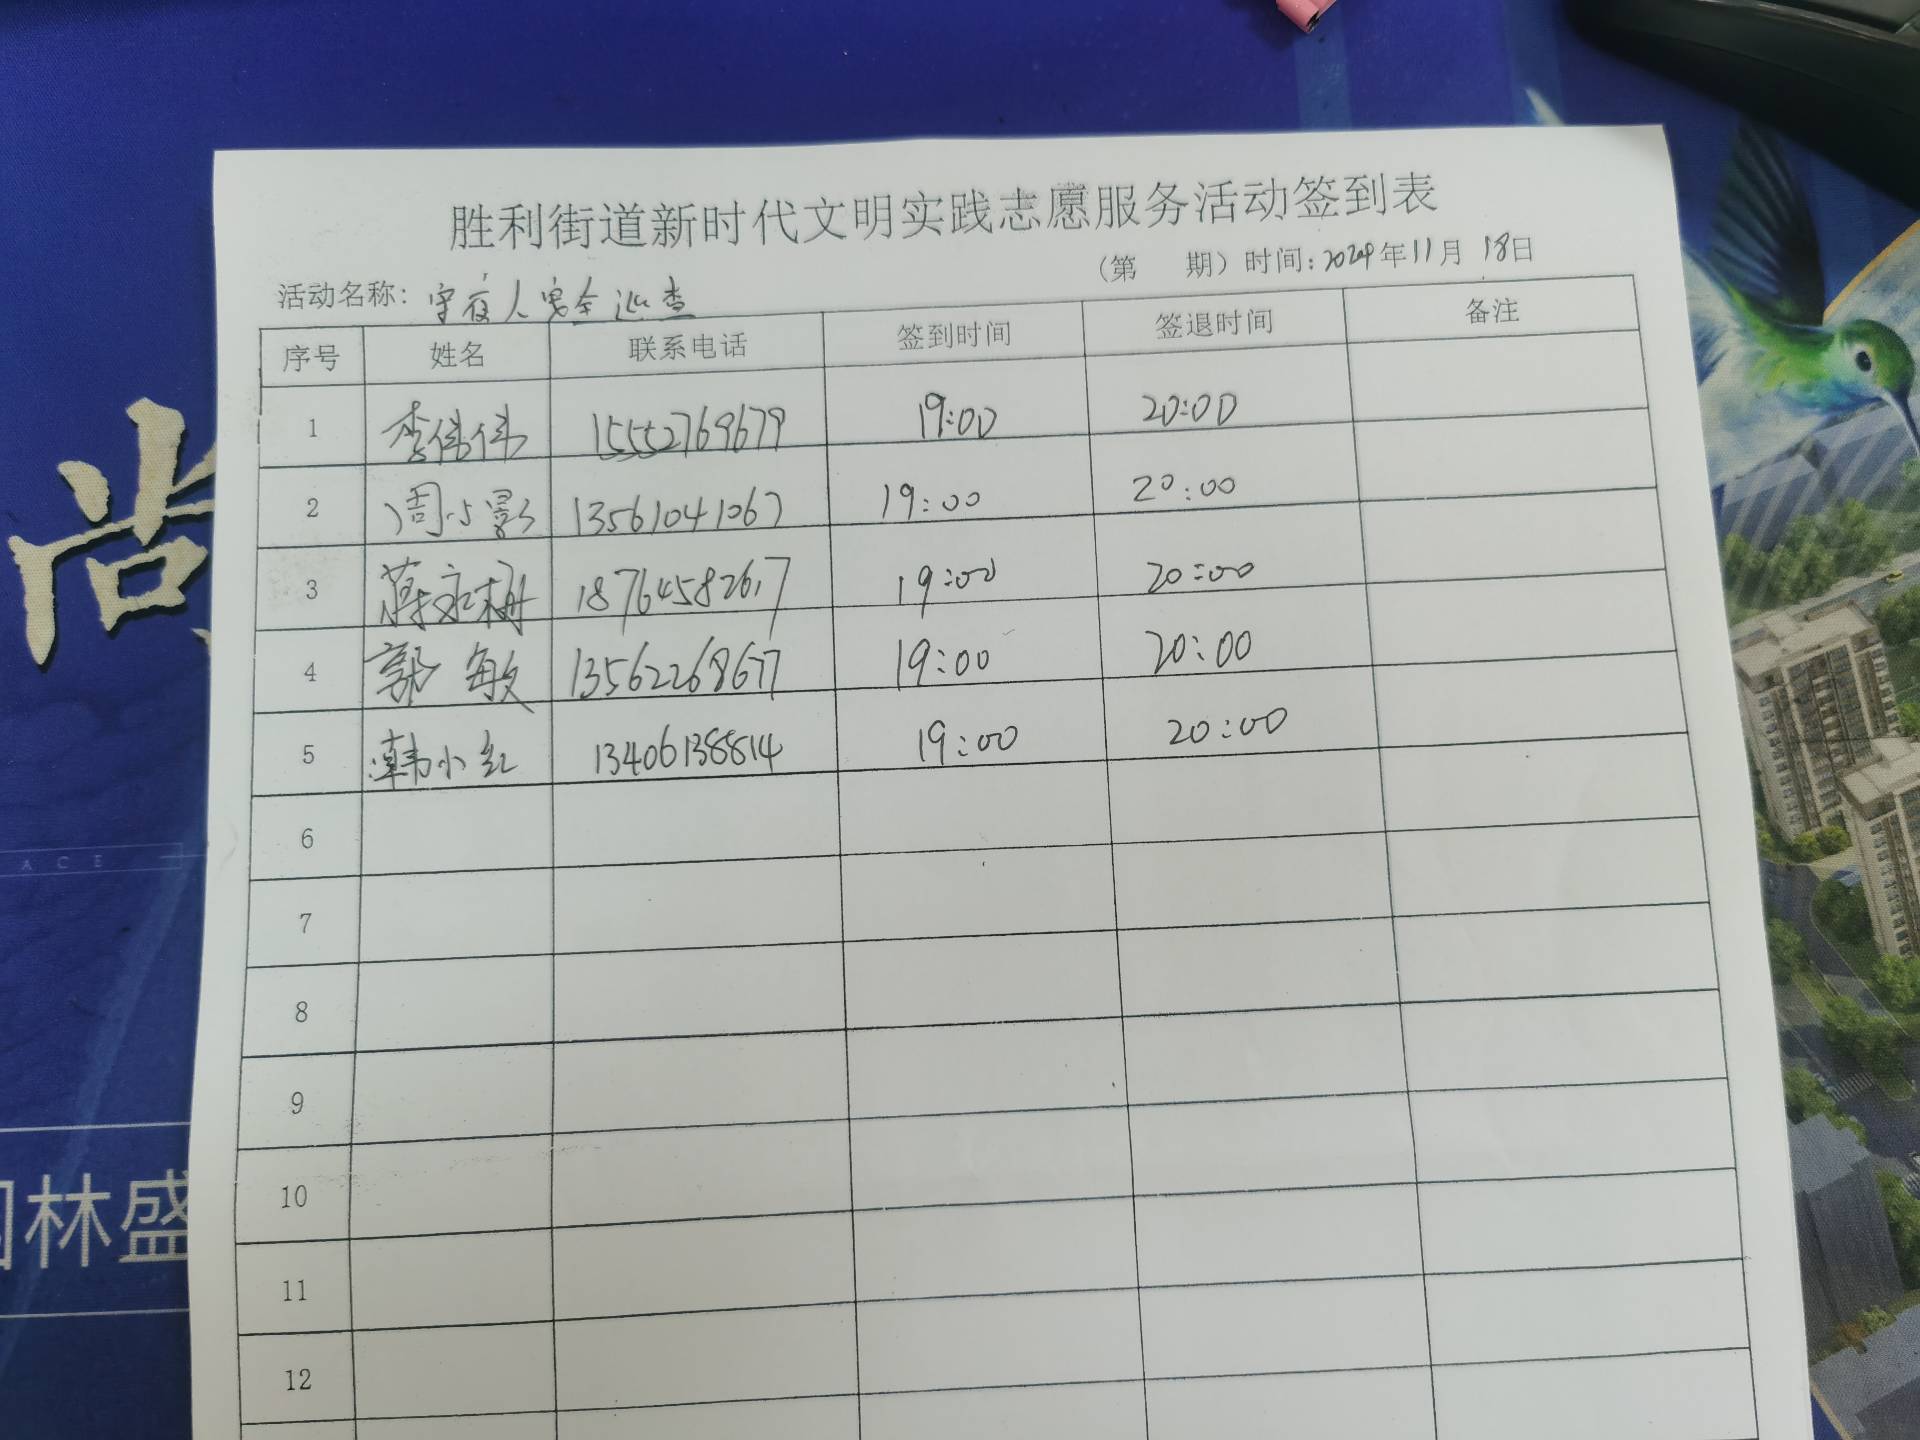 胜利街道新时代文明实践志愿服务活动签到表
(第 期)时间:2024年11月18日
活动名称:守夜人安全巡查
序号 姓名 联系电话 签到时间 签退时间 备注
1 李伟伟 15552769679 19:00 20:00
2 周小影 13561041067 19:00 20:00
3 蒋永梅 18764582617 19:00 20:00
4 郭敏 13562268677 19:00 20:00
5 韩小红 13406138814 19:00 20:00
6
7
8
9
10
11
12
尚
ACE
林盛